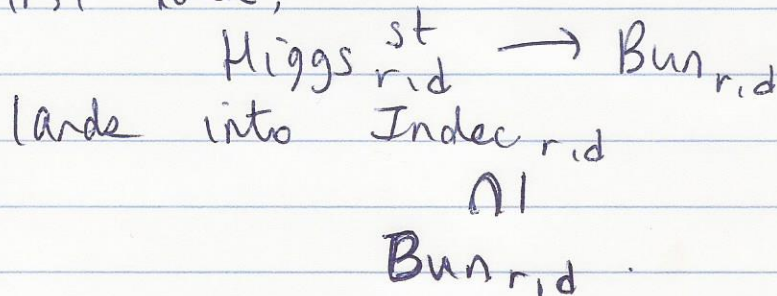 Higgs^{st}_{r,d} ⟶ Bun_{r,d}
lands into Indec_{r,d}
∩|
Bun_{r,d}.